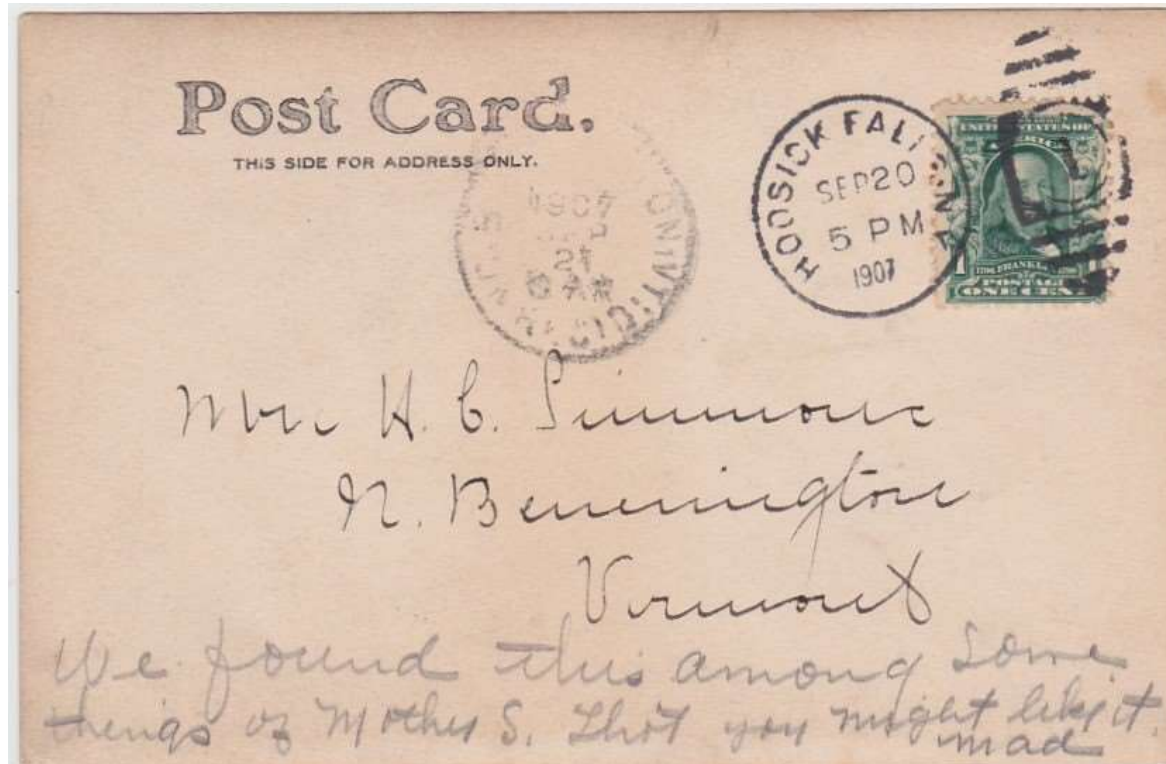 Post Card.
THIS SIDE FOR ADDRESS ONLY.
HOOSICK FALLS N.Y.
SEP 20
5 PM
1907
UNITED STATES OF
AMERICA
FRANKLIN
POSTAGE
ONE CENT
1907
21
Mrs H. C. Simmons
N. Bennington
Vermont
We found this among some
things of Mother S. Thot you might like it.
mad